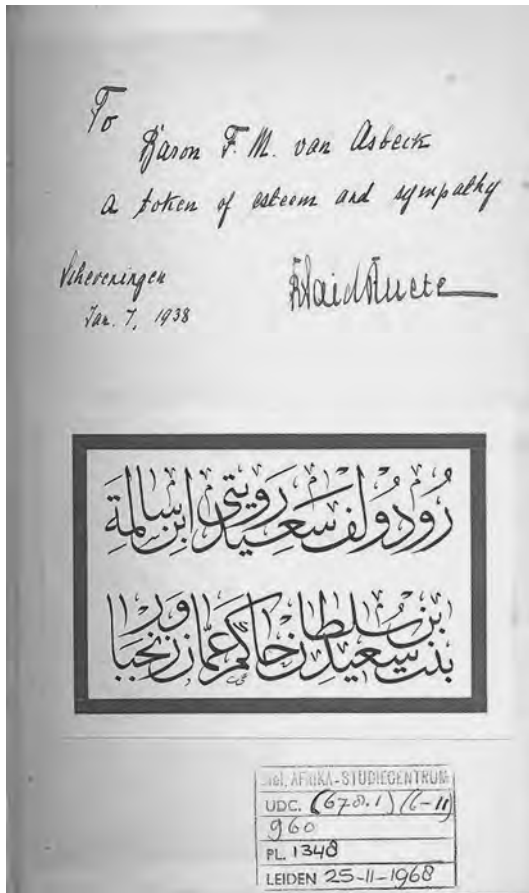 To
Baron F. M. van Asbeck
a token of esteem and sympathy
Scheveningen
Jan. 7, 1938
R Said Ruete
رودولف سعيد رويتى ابن سالمة
بنت سعيد بن سلطان حاكم عمان وزنجبار
AFRIKA-STUDIECENTRUM
UDC. (678.1) (6-11)
960
PL. 1348
LEIDEN 25-11-1968